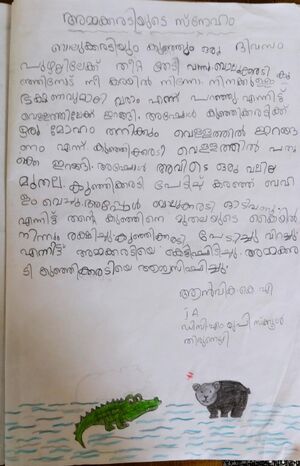 അമ്മക്കരടിയുടെ സ്നേഹം
ബാലുക്കരടിയും കുഞ്ഞും ഒരു ദിവസം
പുഴയിലേക്ക് തീറ്റ തേടി വന്നു. ബാലുക്കരടി
കുഞ്ഞിനോട് നീ കരയിൽ നിന്നോ. നിനക്കുള്ള
ഭക്ഷണവുമായി വരാം എന്ന് പറഞ്ഞു എന്നിട്ട്
വെള്ളത്തിലേക്ക് ഇറങ്ങി. അപ്പോൾ കുഞ്ഞിക്കരടിക്ക്
ഒരു മോഹം തനിക്കും വെള്ളത്തിൽ ഇറങ്ങ
ണം എന്ന് കുഞ്ഞിക്കരടി വെള്ളത്തിൽ
ഇറങ്ങി. അപ്പോൾ അവിടെ ഒരു വലിയ
മുതല. കുഞ്ഞിക്കരടി പേടിച്ച് കരഞ്ഞ് ബഹ
ളം വെച്ചു. അപ്പോൾ ബാലുക്കരടി ഓടിവന്നു.
എന്നിട്ട് തന്റെ കുഞ്ഞിനെ മുതലയുടെ കൈയിൽ
നിന്നും രക്ഷിച്ചു. കുഞ്ഞിക്കരടി പേടിച്ചു വിറച്ചു.
എന്നിട്ട് അമ്മക്കരടിയെ കെട്ടിപ്പിടിച്ചു. അമ്മക്കര
ടി കുഞ്ഞിക്കരടിയെ ആശ്വസിപ്പിച്ചു.
ആൻവിക കെ എ
1 A
ഡി.ബി.എം യു പി സ്കൂൾ